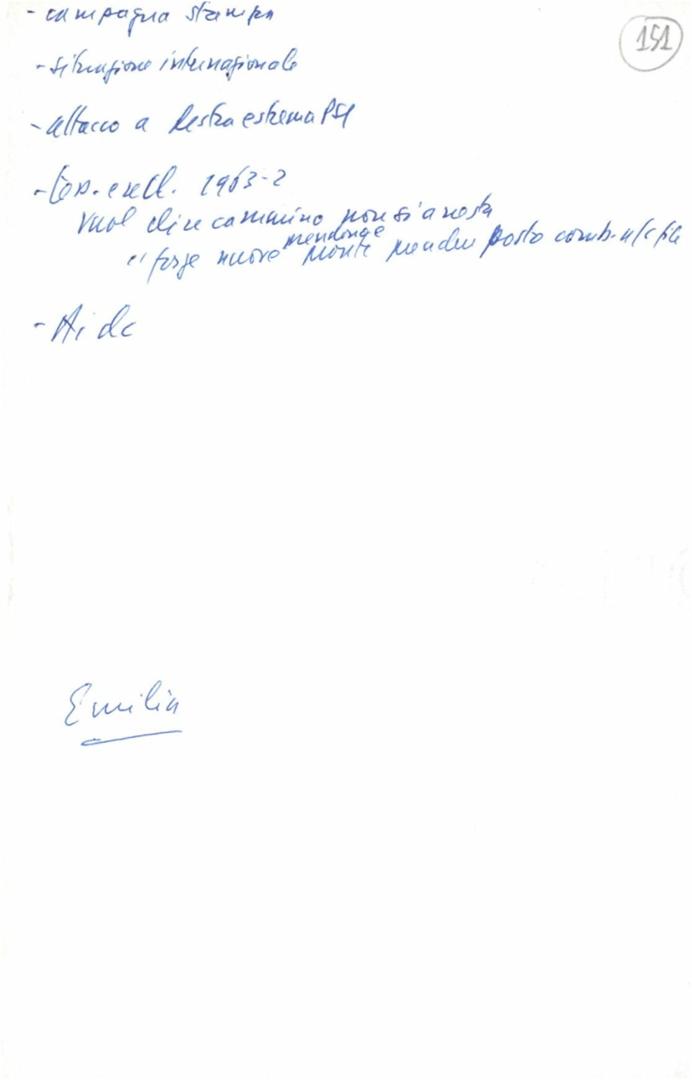 - campagna stampa
151
- situazione internazionale
- attacco a destra estrema PSI
1963-2
vuol dire cammino non si arresta
" forze nuove pronte prender posto
- Ai dc
Emilia